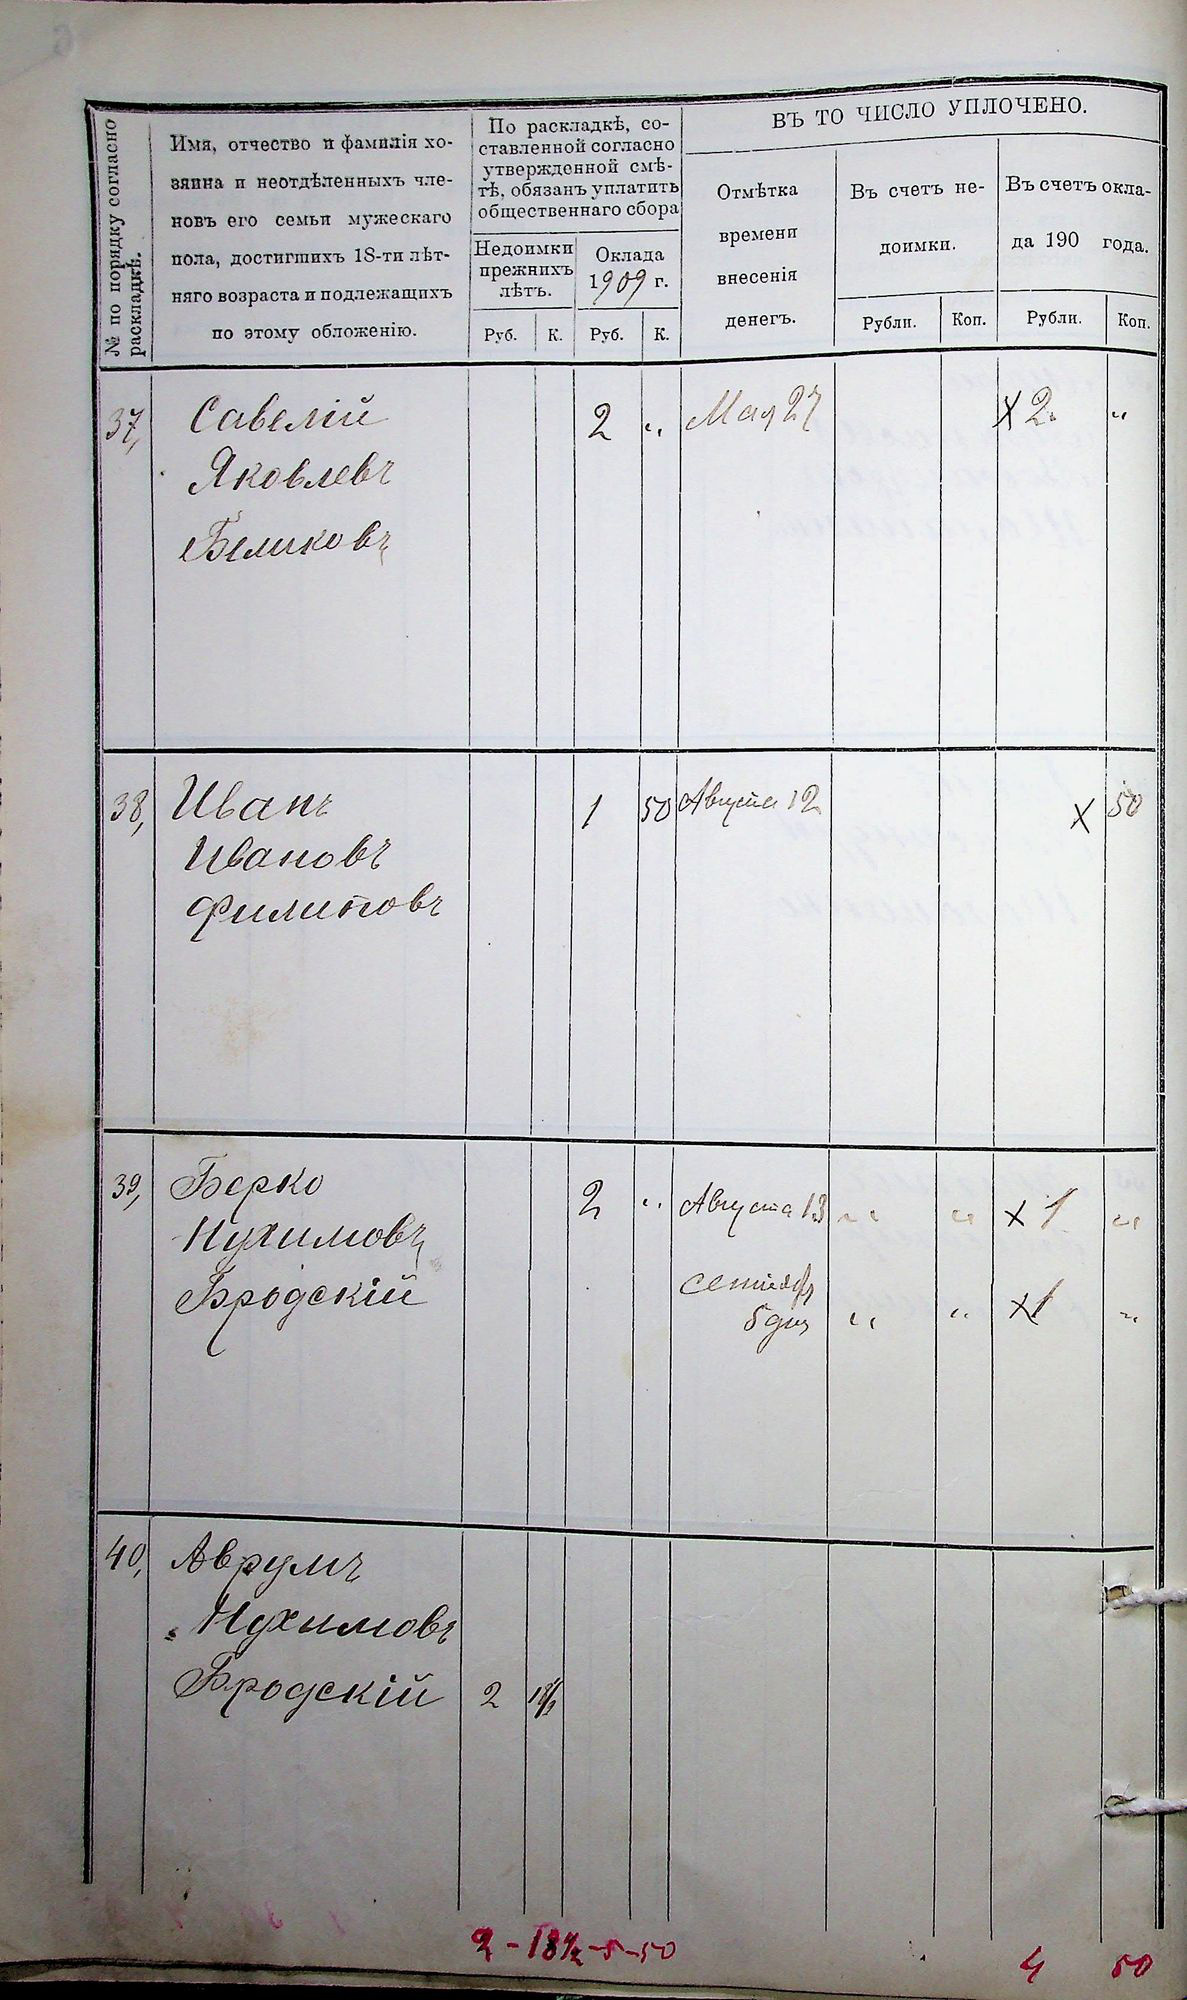 ВЪ ТО ЧИСЛО УПЛОЧЕНО.
№ по порядку согласно
раскладкѣ.
Имя, отчество и фамилія хо-
зяина и неотдѣленныхъ чле-
новъ его семьи мужескаго
пола, достигшихъ 18-ти лѣт-
няго возраста и подлежащихъ
по этому обложенію.
По раскладкѣ, со-
ставленной согласно
утвержденной смѣ-
тѣ, обязанъ уплатить
общественнаго сбора
Недоимки
прежнихъ
лѣтъ.
Оклада
1909 г.
Руб. К. Руб. К.
Отмѣтка
времени
внесенія
денегъ.
Въ счетъ не-
доимки.
Рубли. Коп.
Въ счетъ окла-
да 190 года.
Рубли. Коп.
37, Савелій 2 " Мая 27 х 2. "
Яковлевъ
Беликовъ
38, Иванъ 1 50 Августа 12 х 50
Ивановъ
Филиповъ
39, Берко 2 " Августа 13 " " х 1 "
Нухимовъ
Бродскій
сентябр
5 дня " " х1 "
40, Аврумъ
Нухимовъ
Бродскій 2 18½
2 - 18½ - 5 - 50 4 50